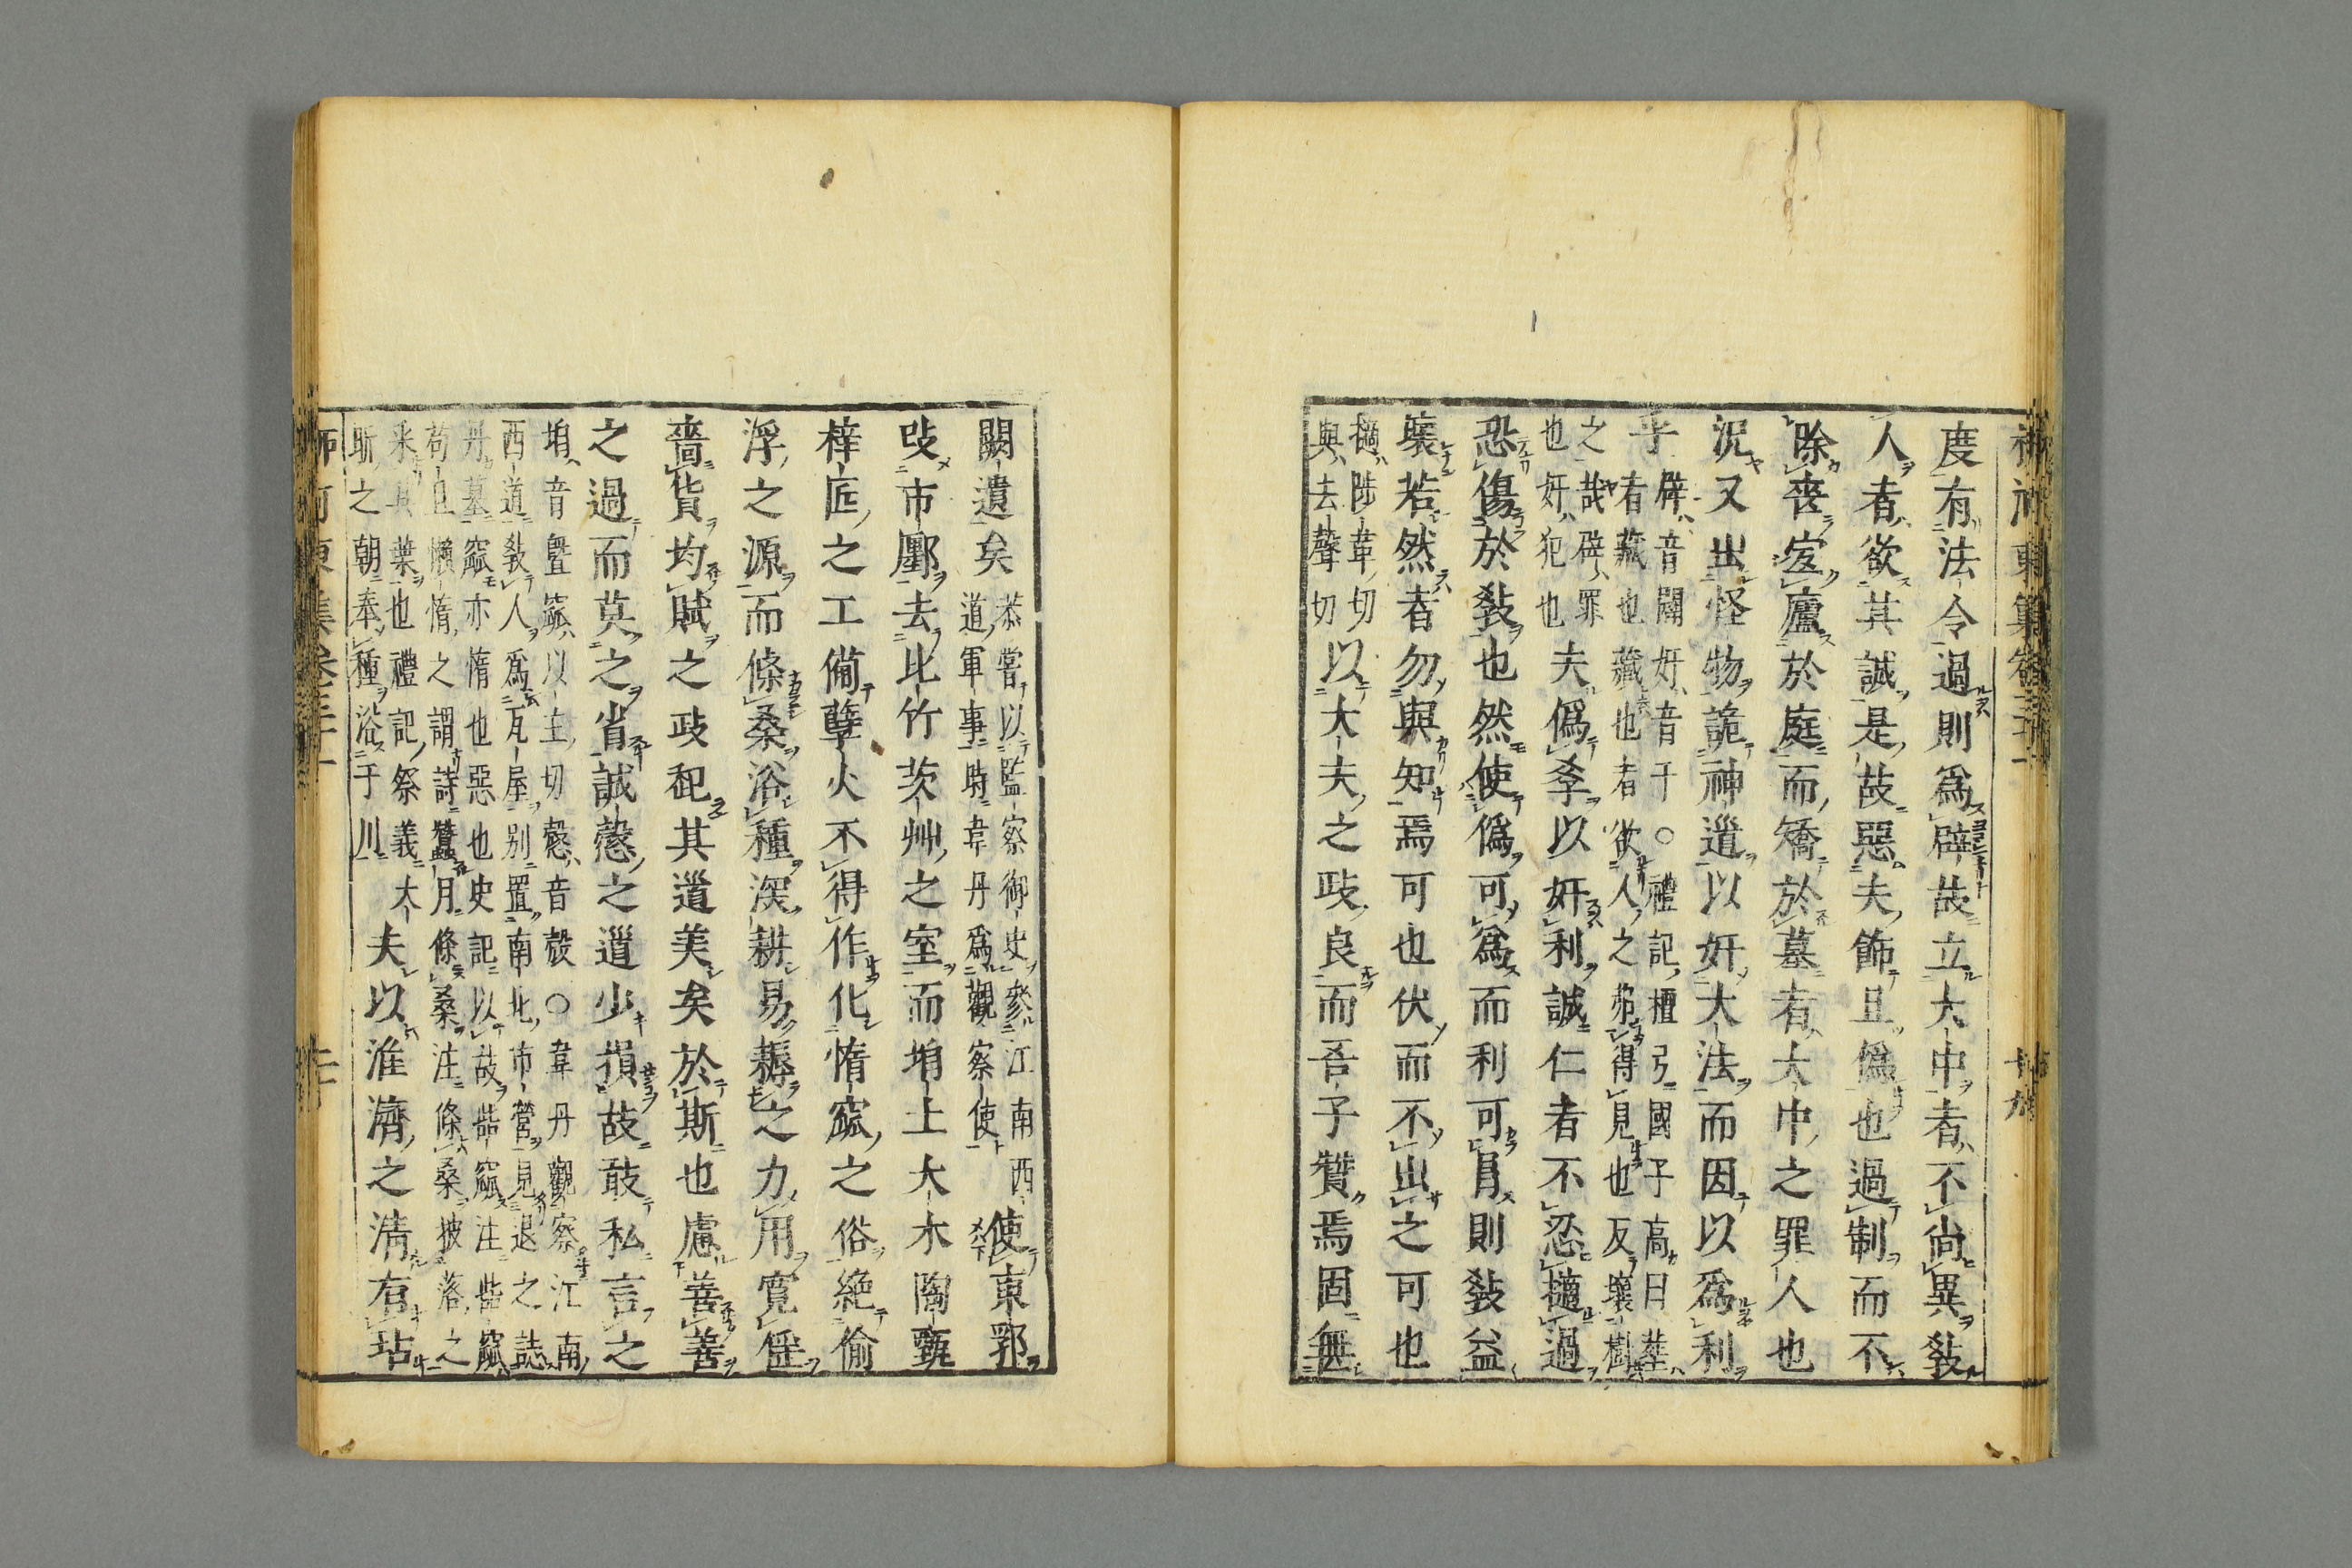 柳河東集卷三十一　十九
度有法令過則爲辟故立大中者不尚異教
人者欲其誠是故惡夫飾且僞也過制而不
除喪宐廬於庭而矯於墓者大中之罪人也
況又出怪物詭神道以奸大法而因以爲利
乎
辟音闢奸音干○禮記檀弓國子高曰葬
者藏也藏也者欲人之弗得見也反壤樹
之哉辟罪
也奸犯也
夫僞孝以奸利誠仁者不忍擿過
恐傷於教也然使僞可爲而利可冒則教益
壞若然者勿與知焉可也伏而不出之可也
擿陟韋切
與去聲切
以大夫之政良而吾子贊焉固無
闕遺矣
恭嘗以監察御史參江南西
道軍事時韋丹爲觀察使
使東郛
攺市鄽去比竹茨艸之室而垍土大木陶甄
梓匠之工備孽火不得作化惰窳之俗絶偷
浮之源而條桑浴種深耕易耨之力用寬徭
嗇貨均賦之政起其道美矣於斯也慮善善
之過而莫之省誠愨之道少損故敢私言之
垍音曁窳以主切愨音殼○韋丹觀察江南
西道教人爲瓦屋別置南北市營見退之誌
丹墓窳亦惰也惡也史記以故呰窳注呰窳
苟且懶惰之謂詩蠶月條桑注條桑披落之
采其葉也禮記祭義大
昕之朝奉種浴于川
夫以淮濟之清有玷
柳河東集卷三十一